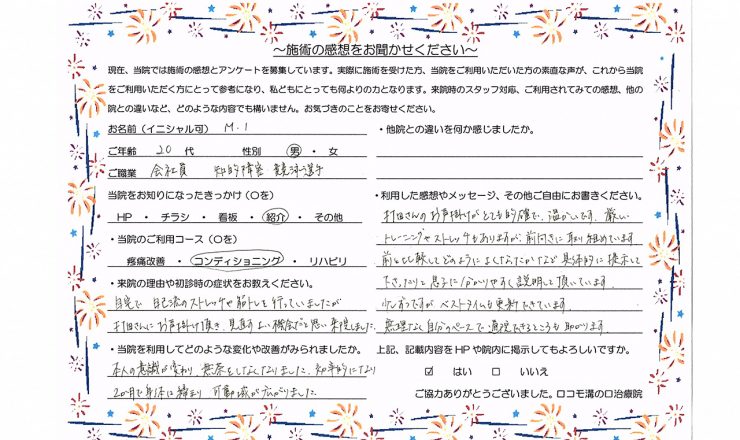 〜施術の感想をお聞かせください〜
現在、当院では施術の感想とアンケートを募集しています。実際に施術を受けた方、当院をご利用いただいた方の素直な声が、これから当院
をご利用いただく方にとって参考になり、私どもにとっても何よりの力となります。来院時のスタッフ対応、ご利用されてみての感想、他の
院との違いなど、どのような内容でも構いません。お気づきのことをお寄せください。
お名前(イニシャル可) M.I
ご年齢 20 代 性別 男 ・ 女
ご職業 会社員 知的障害 競泳選手
当院をお知りになったきっかけ(〇を)
HP ・ チラシ ・ 看板 ・ 紹介 ・ その他
・当院のご利用コース(〇を)
疼痛改善 ・ コンディショニング ・ リハビリ
・来院の理由や初診時の症状をお教えください。
自宅で 自己流のストレッチや筋トレを行っていましたが
打田さんにお声掛け頂き、見直すよい機会だと思い来院しました。
・当院を利用してどのような変化や改善がみられましたか。
本人の意識が変わり 無茶をしなくなりました。
2か月で身体に締まり 可動域が広がりました。
・他院との違いを何か感じましたか。
・利用した感想やメッセージ、その他ご自由にお書きください。
打田さんのお声掛けがとても的確で、温かいです。厳しい
トレーニングやストレッチもありますが、前向きに取り組めています
前とも比較してどのようによくなったかなど具体的に提示して
下さったりと息子に分かりやすく説明して頂いています。
少しずつですが ベストタイムも更新できています。
無理なく自分のペースで通院できるところも助かります。
上記、記載内容をHPや院内に掲示してもよろしいですか。
☑ はい □ いいえ
ご協力ありがとうございました。ロコモ溝の口治療院